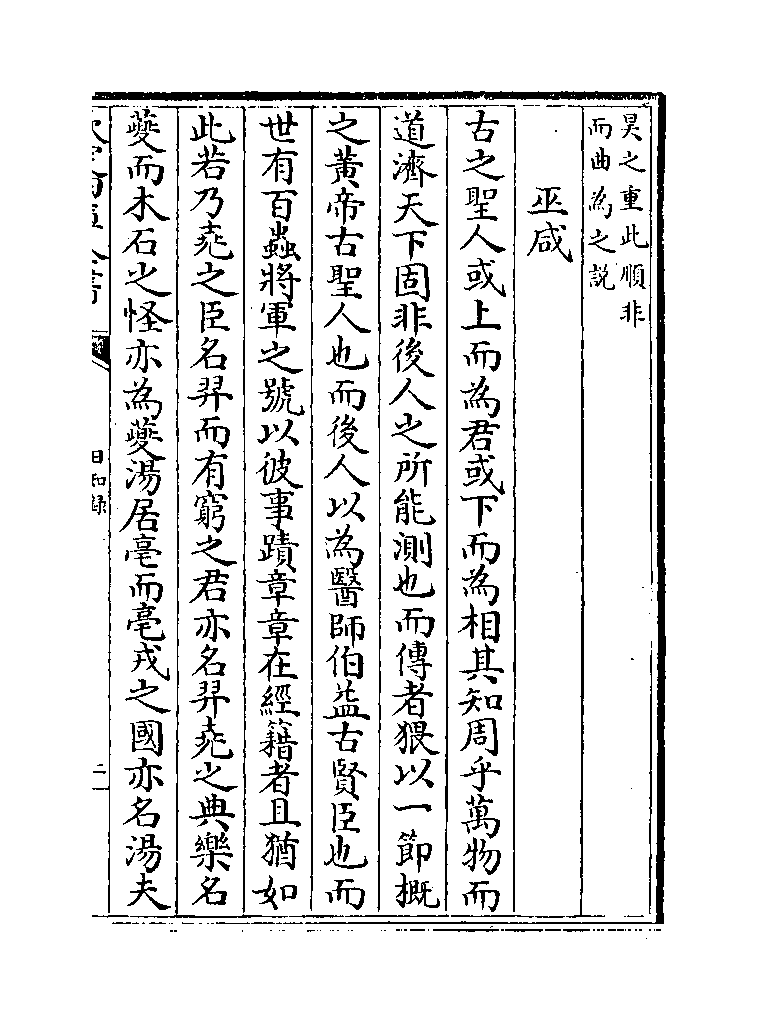 昊之重此順非
而曲為之説
巫咸
古之聖人或上而為君或下而為相其知周乎萬物而
道濟天下固非後人之所能測也而傳者猥以一節概
之黃帝古聖人也而後人以為醫師伯益古賢臣也而
世有百蟲將軍之號以彼事蹟章章在經籍者且猶如
此若乃堯之臣名羿而有窮之君亦名羿堯之典樂名
夔而木石之怪亦為夔湯居亳而亳戎之國亦名湯夫
日知錄